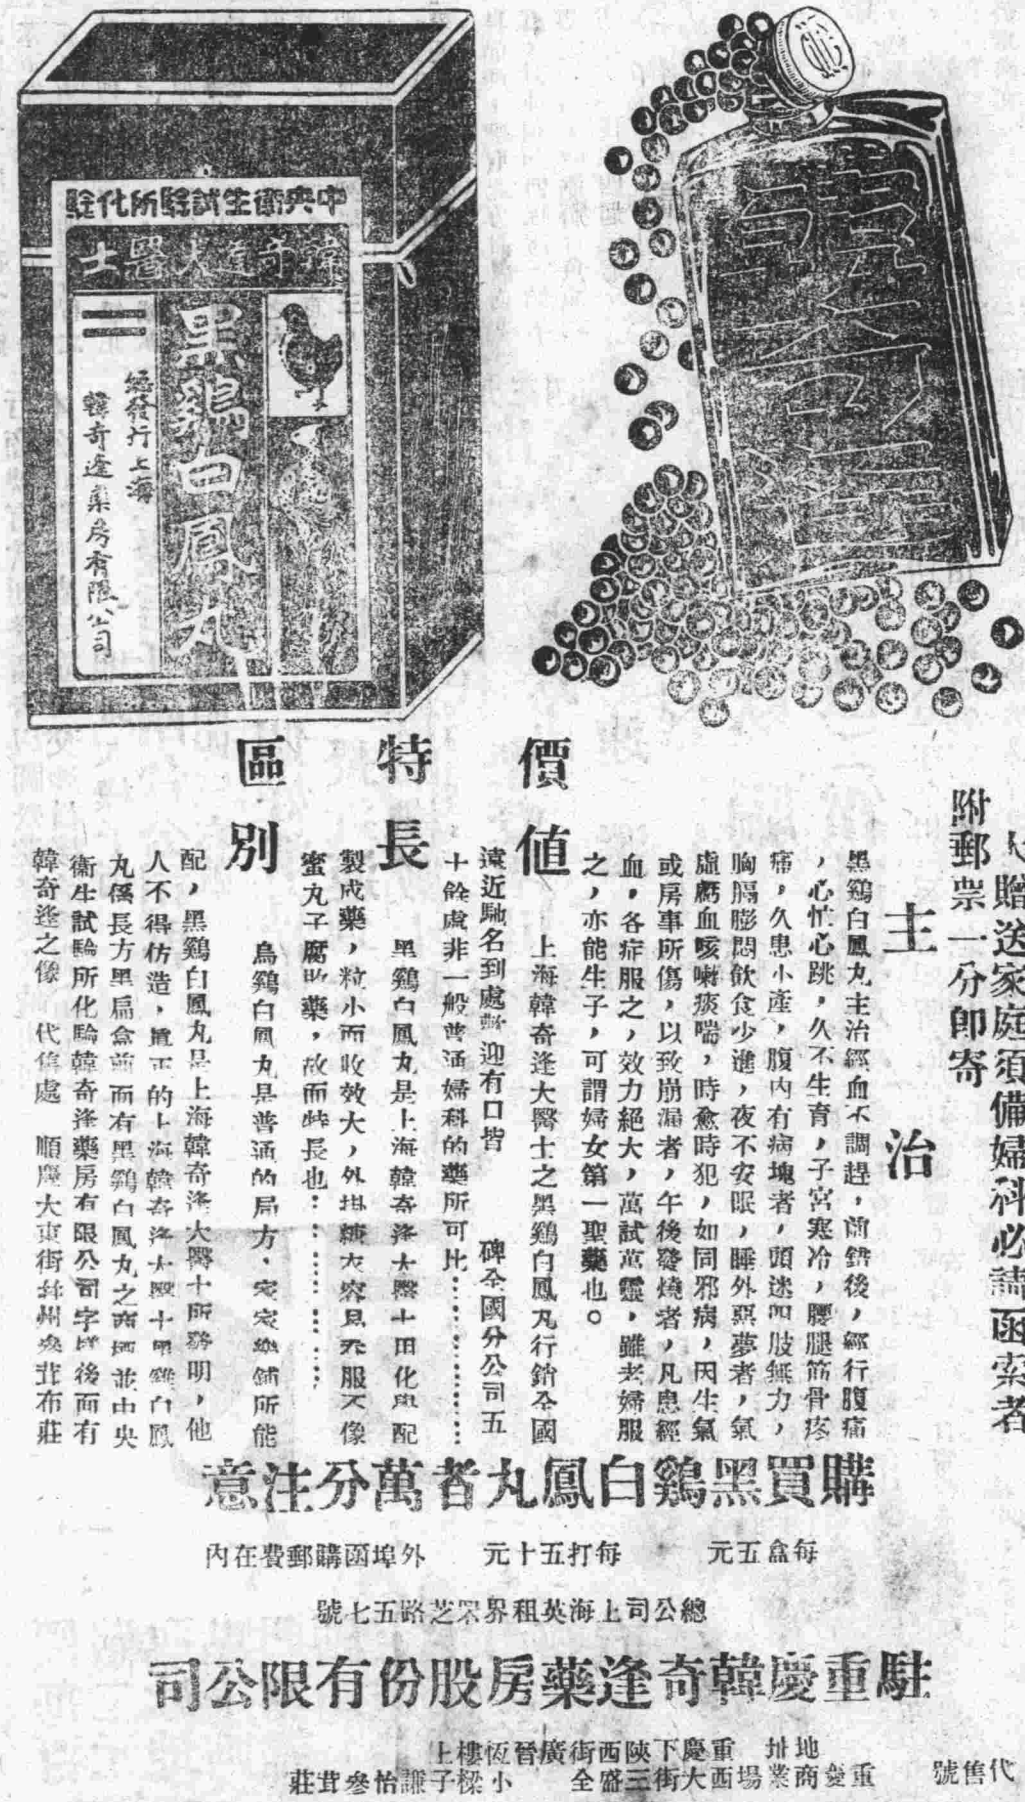 中央衞生試驗所化驗
韓奇逢大醫士
黑鷄白鳳丸
總發行上海
韓奇逢藥房有限公司
贈送家庭須備婦科必讀函索者
附郵票一分即寄
主治
黑鷄白鳳丸主治經血不調趕前錯後，經行腹痛
，心忙心跳，久不生育，子宮寒冷，腰腿筋骨疼
痛，久患小產，腹內有病塊者，頭迷四肢無力，
胸膈膨悶飲食少進，夜不安眠，睡外惡夢者，氣
虛虧血咳嗽痰喘，時愈時犯，如同邪病，因生氣
或房事所傷，以致崩漏者，午後發燒者，凡患經
血，各症服之，效力絕大，萬試萬靈，雖老婦服
之，亦能生子，可謂婦女第一聖藥也。
價值
上海韓奇逢大醫士之黑鷄白鳳丸行銷全國
遠近馳名到處歡迎有口皆碑全國分公司五
十餘處非一般普通婦科的藥所可比………
特長
黑鷄白鳳丸是上海韓奇逢大醫士用化學配
製成藥，粒小而收效大，外掛糖衣容易吞服不像
蜜丸子腐敗藥，故而特長也………
區別
烏鷄白鳳丸是普通的局方，家家藥鋪所能
配，黑鷄白鳳丸是上海韓奇逢大醫士所發明，他
人不得仿造，眞正的上海韓奇逢大醫士黑雞白鳳
丸係長方黑扁盒前面有黑鷄白鳳丸之商標並中央
衞生試驗所化驗韓奇逢藥房有限公司字樣後面有
韓奇逢之像 代售處 順慶大東街 州參茸布莊
購買黑鷄白鳳丸者萬分注意
每盒五元 每打五十元 外埠函購郵費在內
總公司上海英租界 芝路五七號
駐重慶韓奇逢藥房股份有限公司
地址 重慶下陝西街廣晉恆樓上
代售號 重慶商業場西大街三盛全 小樑子謙怡參茸莊